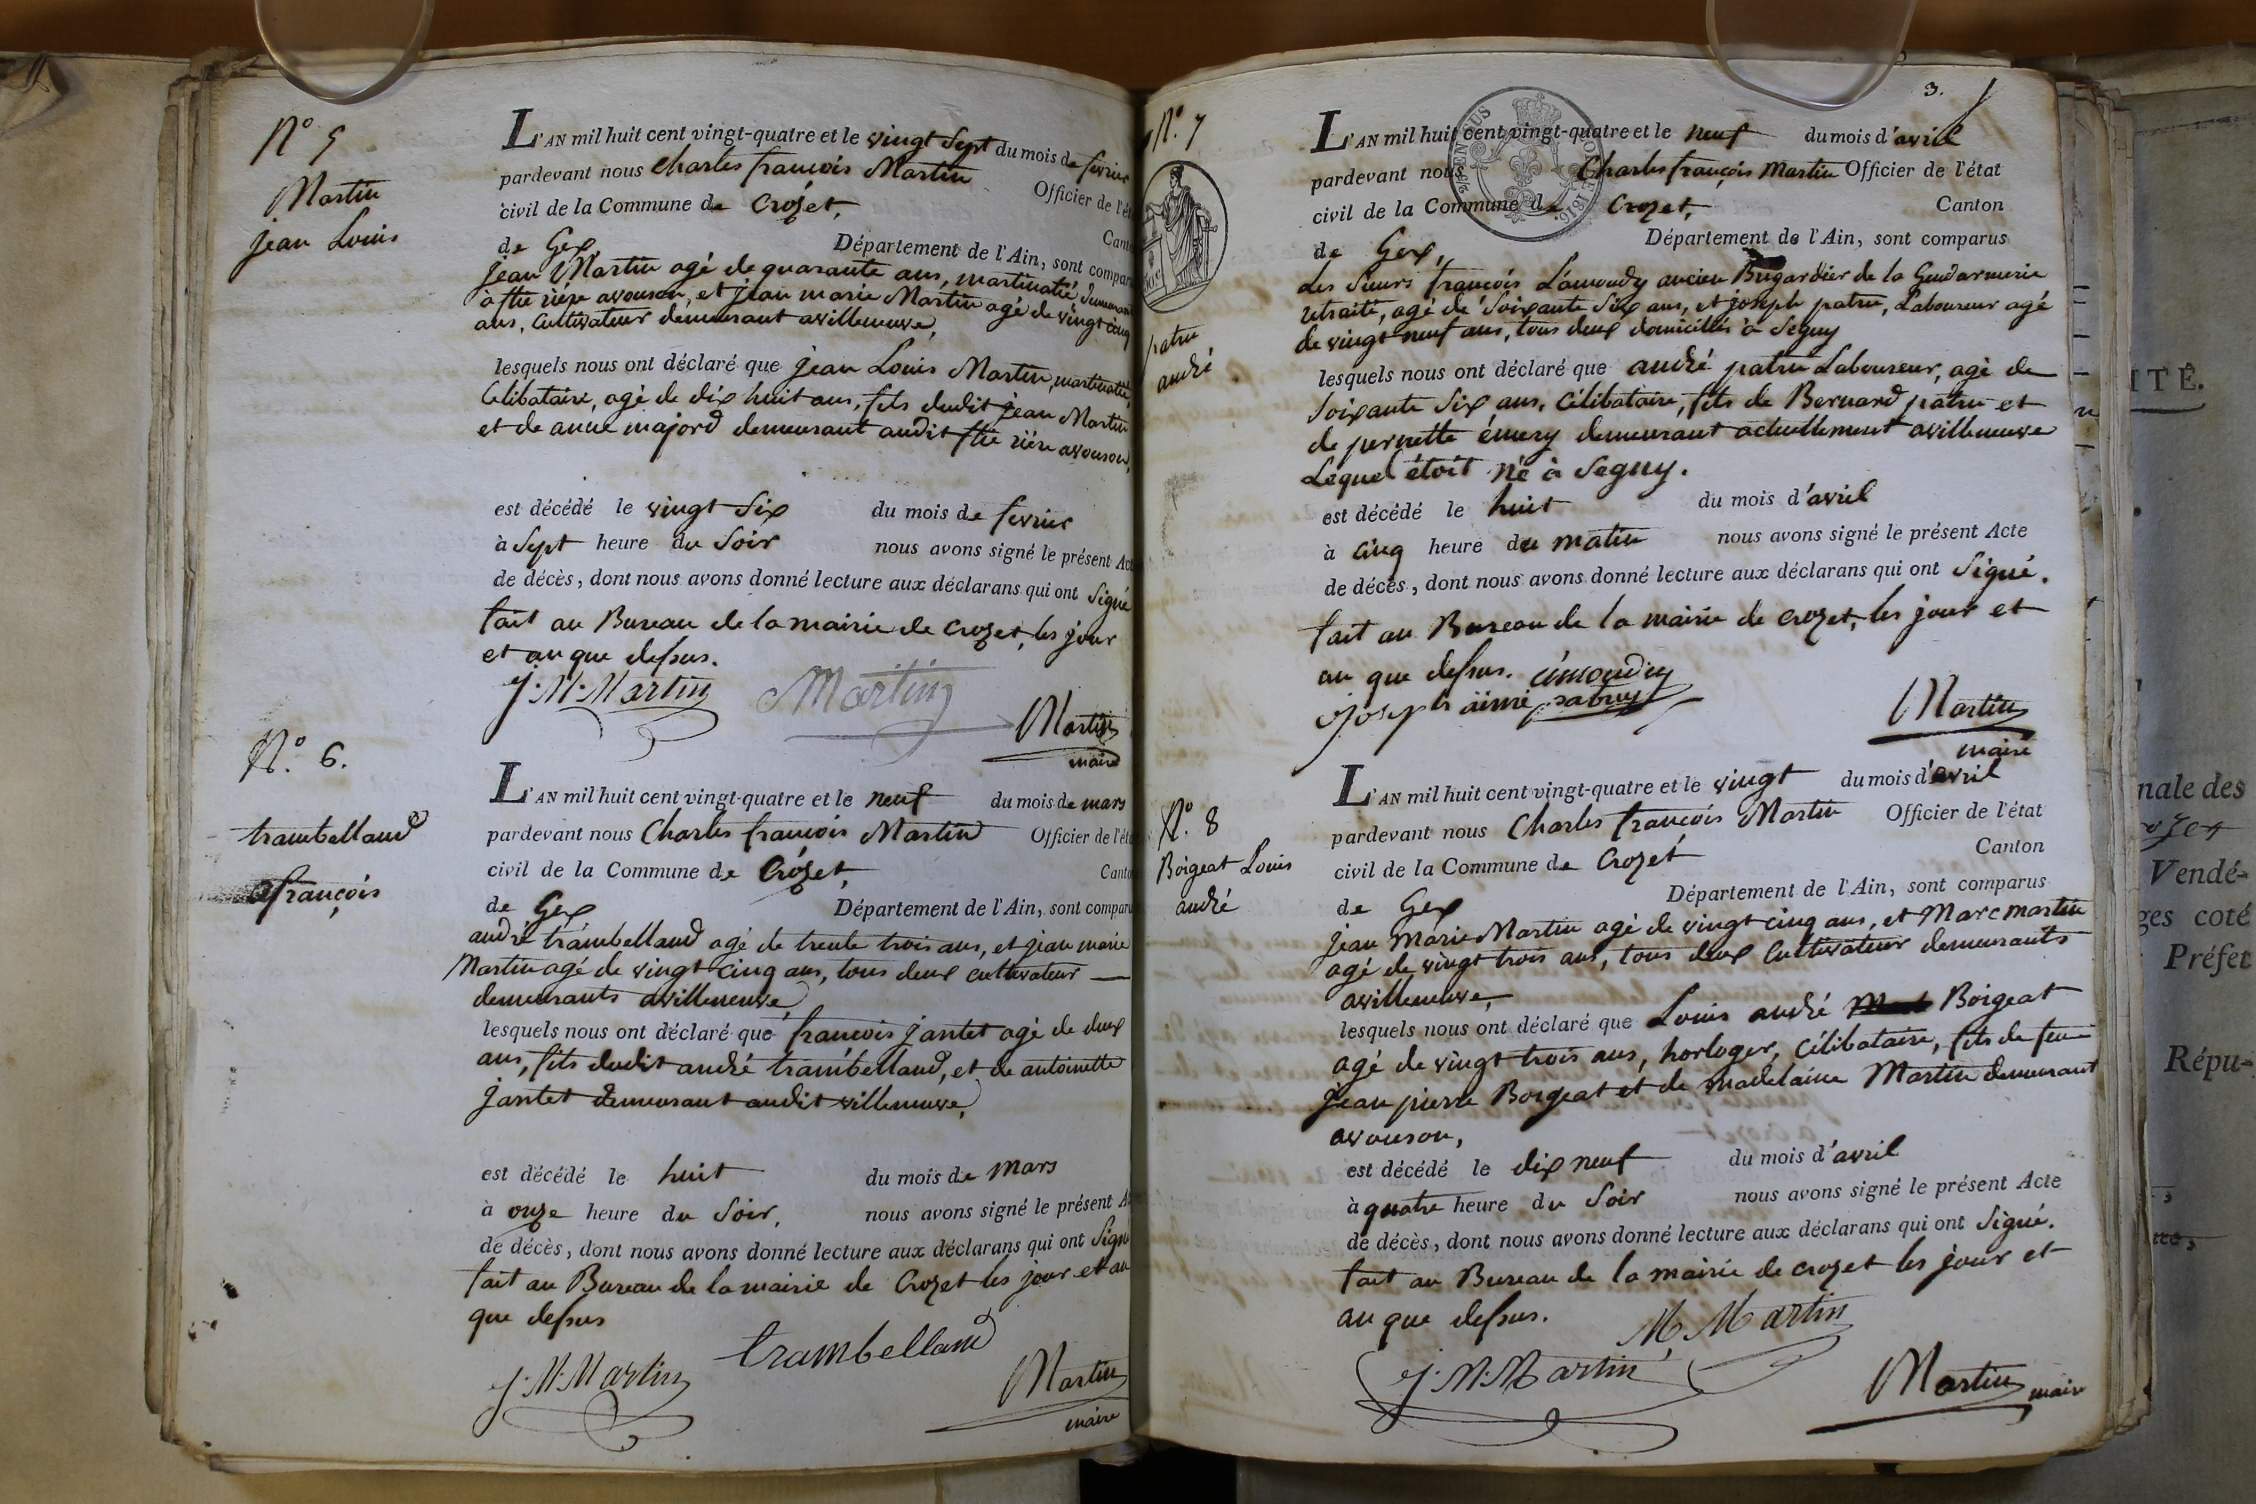 N.º 5
Martin
jean Louis
L'AN mil huit cent vingt-quatre et le vingt Sept du mois de fevrier
pardevant nous Charles françois Martin Officier de l'ét
civil de la Commune de Crozet, Cant
de Gex Département de l'Ain, sont compar
jean Martin agé de quarante ans, demeura
à ftie rière avouson, et jean marie Martin agé de vingt cinq
ans, Cultivateur demeurant avilleneuve,
lesquels nous ont déclaré que jean Louis Martin,
Celibataire, agé de dix huit ans, fils dudit jean Martin
et de anne majord demeurant audit ftie rière avouson,
est décédé le vingt Six du mois de fevrier
à Sept heure du Soir nous avons signé le présent Act
de décès, dont nous avons donné lecture aux déclarans qui ont Signé
fait au Bureau de la mairie de crozet, les jour
et an que dessus.
J. M. Martin Martin Martin
maire
N.º 6.
trambelland
françois
L'AN mil huit cent vingt-quatre et le neuf du mois de mars
pardevant nous Charles françois Martin Officier de l'ét
civil de la Commune de Crozet, Canto
de Gex Département de l'Ain, sont compar
andré trambelland agé de trente trois ans, et jean marie
Martin agé de vingt cinq ans, tous deux cultivateur
demeurants avilleneuve,
lesquels nous ont déclaré que francois jantet agé de deux
ans, fils dudit andré trambelland, et de antoinette
jantet demeurant audit villeneuve,
est décédé le huit du mois de mars
à onze heure du Soir, nous avons signé le présent A
de décès, dont nous avons donné lecture aux déclarans qui ont Signé
fait au Bureau de la mairie de Crozet les jour et an
que dessus
J. M. Martin trambelland Martin
maire
3.
N.º 7
patru
andré
L'AN mil huit cent vingt-quatre et le neuf du mois d'avril
pardevant nous Charles françois Martin Officier de l'état
civil de la Commune de Crozet, Canton
de Gex, Département de l'Ain, sont comparus
des Sieurs françois Lámoudry ancien Brigardier de la Gendarmerie
retraité, agé de Soixante Six ans, et joseph patru, Laboureur agé
de vingt neuf ans, tous deux domiciliés à Segny
lesquels nous ont déclaré que andré patru Laboureur, agé de
Soixante Six ans, Célibataire, fils de Bernard patru et
de pernette émery demeurant actuellement avilleneuve
Lequel étoit né à Segny.
est décédé le huit du mois d'avril
à cinq heure du matin nous avons signé le présent Acte
de décès, dont nous avons donné lecture aux déclarans qui ont Signé.
fait au Bureau de la mairie de crozet, les jour et
an que dessus.
joseph aimé patru Martin
maire
N.º 8
Boigeat Louis
andré
L'AN mil huit cent vingt-quatre et le vingt du mois d'avril
pardevant nous Charles françois Martin Officier de l'état
civil de la Commune de Crozet Canton
de Gex Département de l'Ain, sont comparus
jean Marie Martin agé de vingt cinq ans, et Marc martin
agé de vingt trois ans, tous deux Cultivateur demeurants
avilleneuve,
lesquels nous ont déclaré que Louis andré Boigeat
agé de vingt trois ans, horloger, Célibataire, fils de feu
jean pierre Boigeat et de madelaine Martin demeurant
avouson,
est décédé le dix neuf du mois d'avril
à quatre heure du Soir nous avons signé le présent Acte
de décès, dont nous avons donné lecture aux déclarans qui ont Signé.
fait au Bureau de la mairie de crozet les jour et
an que dessus. M. Martin
J. M. Martin Martin maire
ITÉ.
nale des
Vendé-
ges coté
Préfet
Répu-